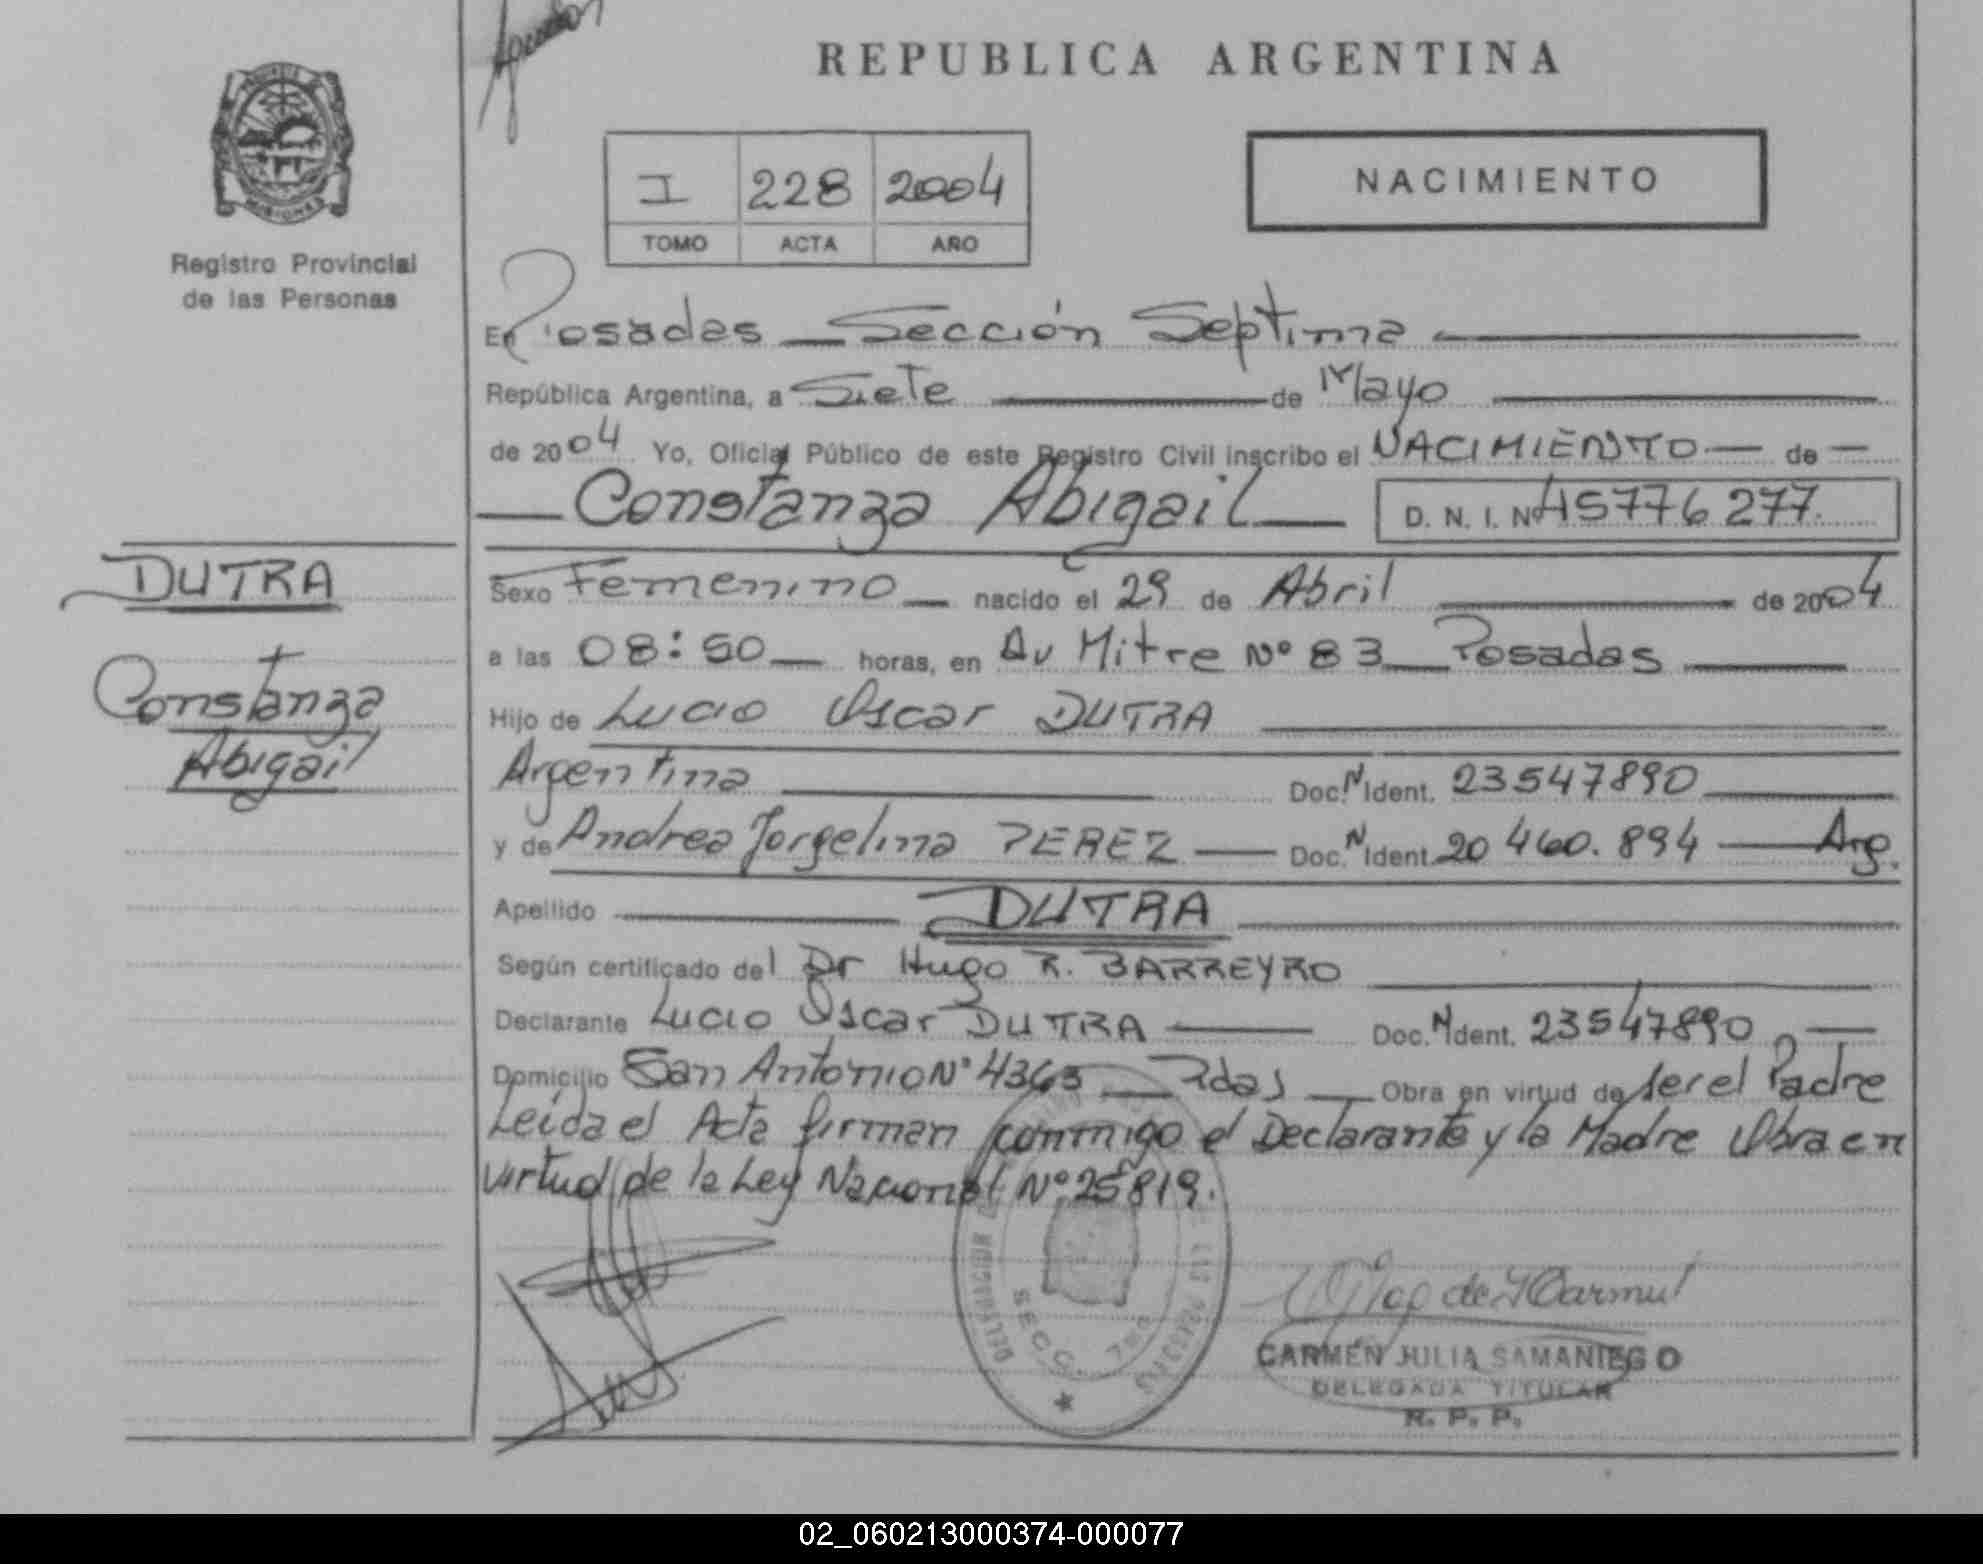 REPUBLICA ARGENTINA
MISIONES
Registro Provincial
de las Personas
I 228 2004
TOMO ACTA AÑO
NACIMIENTO
En Posadas Sección Septima
República Argentina, a Siete de Mayo
de 2004 Yo, Oficial Público de este Registro Civil inscribo el NACIMIENTO de
Constanza Abigail D. N. I. Nº 45776277.
DUTRA
Constanza
Abigail
Sexo Femenino nacido el 29 de Abril de 2004
a las 08:50 horas, en Av Mitre Nº 83 Posadas
Hijo de Lucio Oscar DUTRA
Argentina Doc. N Ident. 23547890
y de Andrea Jorgelina PEREZ Doc. N Ident. 20 460.894 Arg.
Apellido DUTRA
Según certificado del Dr Hugo R. BARREYRO
Declarante Lucio Oscar DUTRA Doc. N Ident. 23547890
Domicilio San Antonio Nº 4363 Pdas Obra en virtud de ser el Padre
Leída el Acta firman conmigo el Declarante y la Madre Obra en
virtud de la Ley Nacional Nº 25819.
SECC. 7ma
CARMEN JULIA SAMANIEGO
DELEGADA TITULAR
R. P. P.
02_060213000374-000077